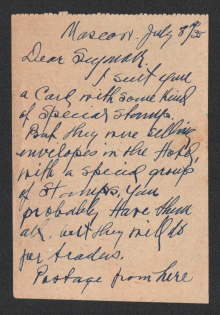 Moscow. July 8th 35
Dear Seymour
I sent you
a Card with some kind
of Special Stamps
But they were selling
envelopes in the Hotel
with a special group
of Stamps. You
probably Have them
all, but they will do
for traders.
Postage from here